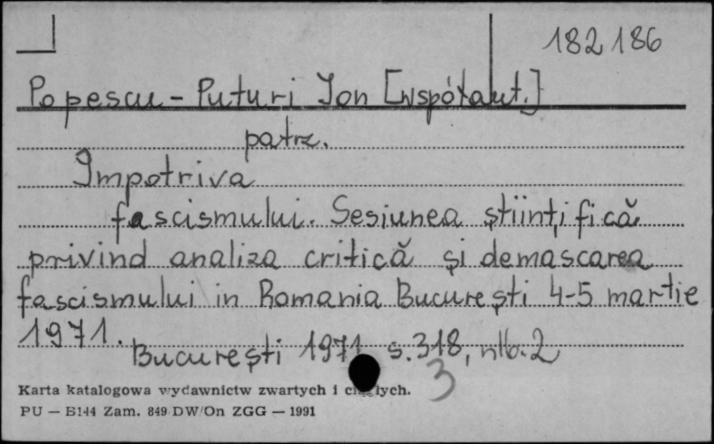 182186
Popescu-Puturi Ion [współaut.]
patrz.
Impotriva
fascismului. Sesiunea ştiinţifică
privind analiza critică şi demascarea
fascismului in Romania Bucureşti 4-5 martie
1971.
Bucureşti 1971 s.318, nlb.2
3
Karta katalogowa wydawnictw zwartych i ciągłych.
PU — B144 Zam. 849 DW/On ZGG — 1991